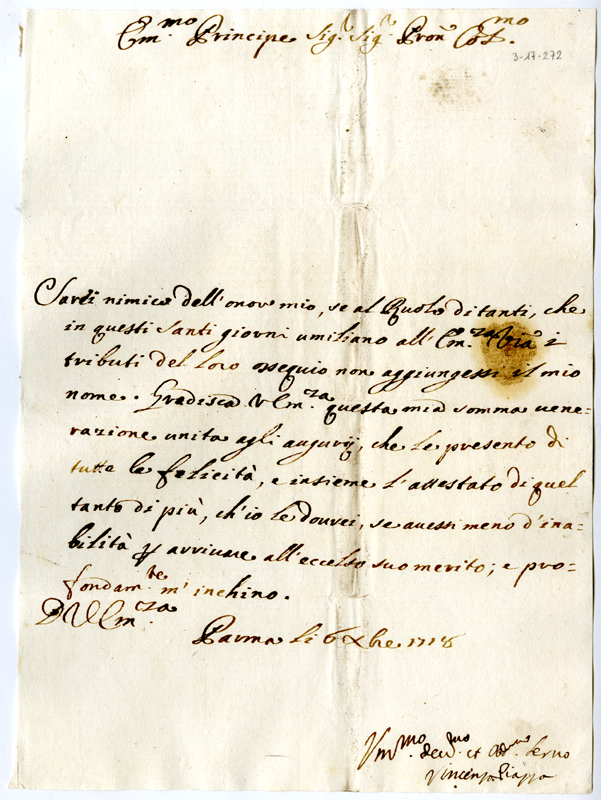 Em.mo Principe Sig.r Sig.r Pron.e Col.mo
3-17-272
Sarei nimico dell'onor mio, se al Ruolo di tanti, che
in questi Santi giorni umiliano all'Em.za V.ra i
tributi del loro ossequio non aggiungessi il mio
nome. Gradisca V Em.za questa mia somma vene-
razione unita agli augurij, che le presento di
tutte le felicità, e insieme l'attestato di quel
tanto di più, ch'io le dovrei, se avessi meno d'ina=
bilità per arrivare all'eccelso suo merito; e pro=
fondam.te m'inchino.
D V Em.za
Parma li 6 Xbre 1718
Um.mo dev.mo et Obb.mo Servo
Vincenzo Piazza